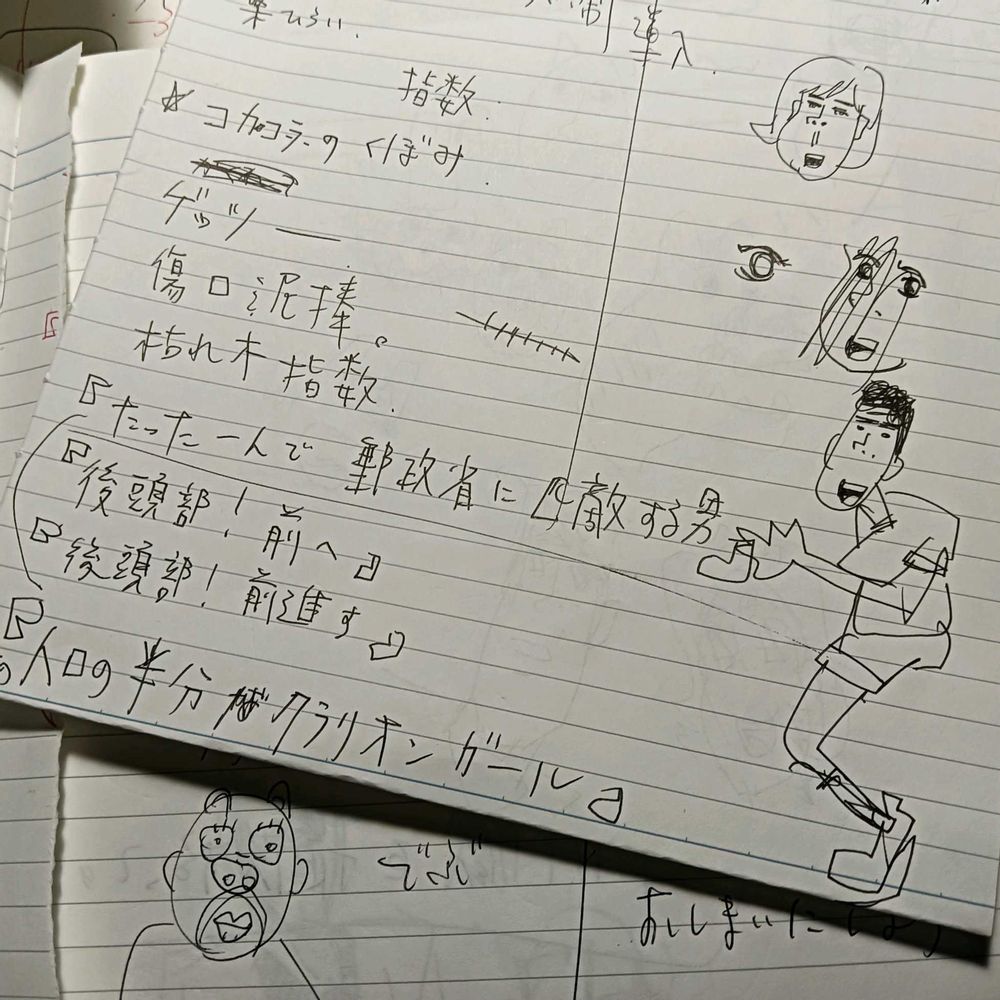 栗ひろい.
制導入.
指数.
☆コカコラーの くぼみ.
ゲッツ ——
傷口泥棒。
枯れ木指数.
『たった一人で 郵政省に匹敵する男
『後頭部！前へ』
『後頭部！前進す』
人口の半分がクラリオンガール』
でぶ
おしまいにしよう